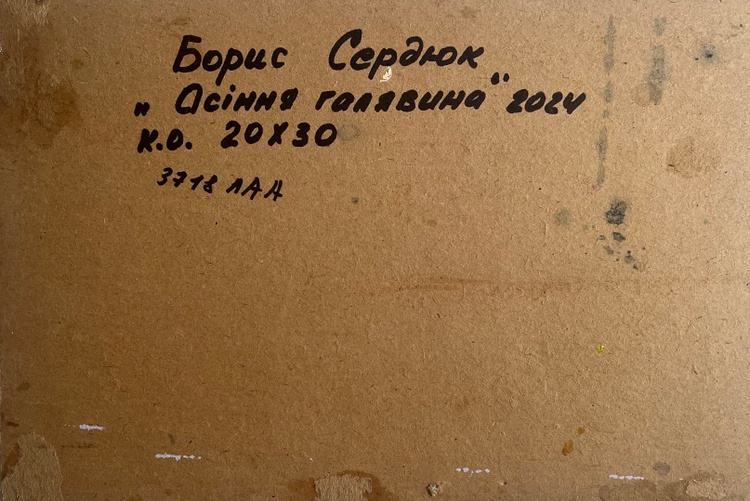 Борис Сердюк
„Осіння галявина" 2024
к.о. 20х30
3718 ЛАН